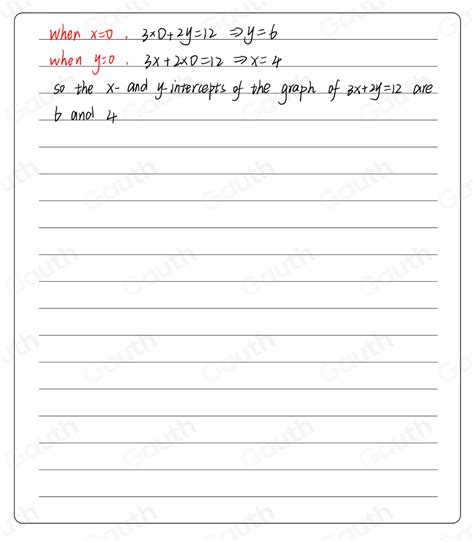 When x=0 , 3×0+2y=12 ⇒ y=6
when y=0 , 3x+2×0=12 ⇒ x=4
so the x- and y-intercepts of the graph of 3x+2y=12 are
6 and 4